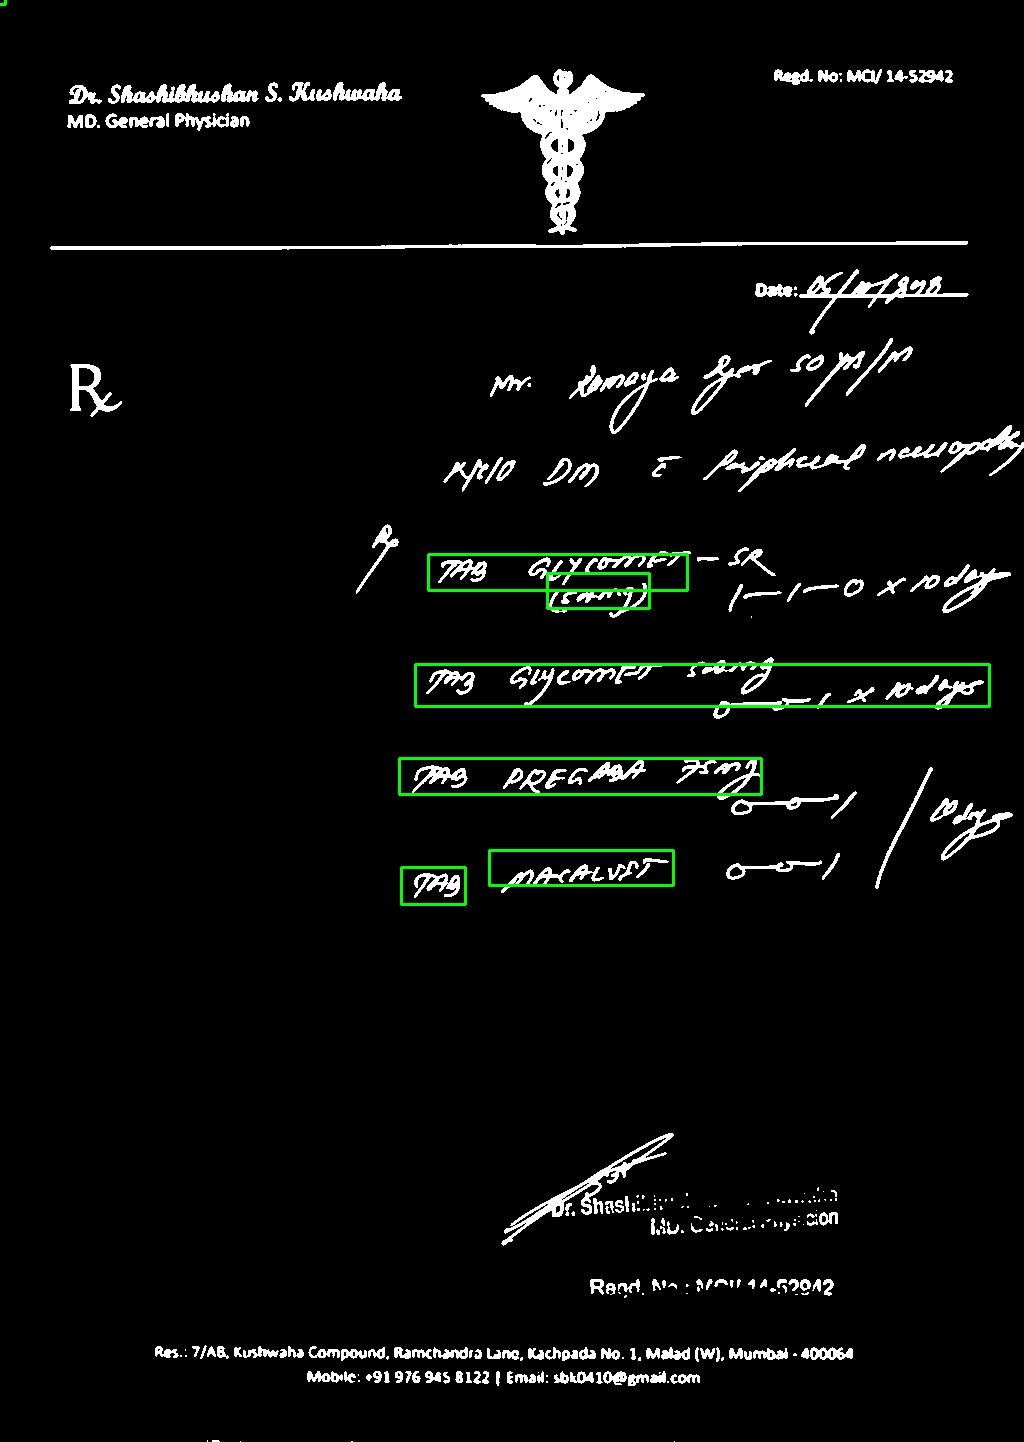 Dr. Shashibhushan S. Kushwaha
MD. General Physician
Regd. No: MCI/ 14-52942
Date:
Rx
Mr. 50 yrs/M
K/C/O DM c̄ Peripheral neuropathy
Rp
TAB GLYCOMET - SR
(500mg) 1-1-0 x 10 days
TAB GLYCOMET 500mg
0-0-1 x 10 days
TAB PREGABA 75mg
0-0-1
10 days
TAB 0-0-1
Dr. Shashi
MD. General Physician
Regd. No.: MCI/ 14-52942
Res.: 7/AB, Kushwaha Compound, Ramchandra Lane, Kachpada No. 1, Malad (W), Mumbai - 400064
Mobile: +91 976 945 8122 | Email: sbk0410@gmail.com